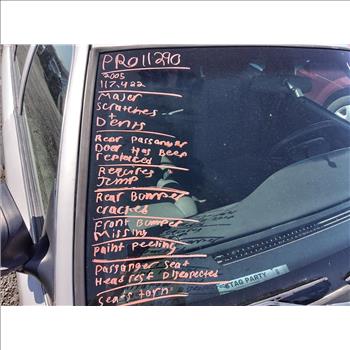 PRO11290
2005
117,422
Major
scratches
+
Dents
Rear Passanger
Door Has Been
replaced
Requires
Jump
Rear Bumper
cracked
Front Bumper
Missing
paint peeling
Passanger Seat
Headrest Disepected
Seats torn
STAG PARTY